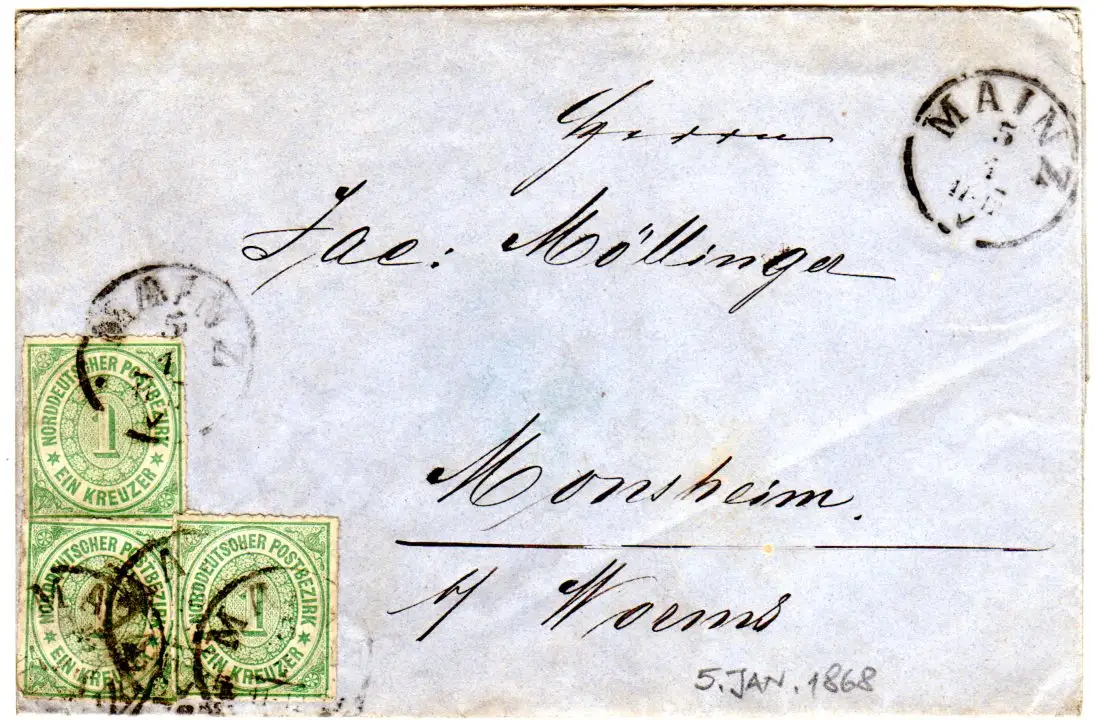 MAINZ
5
1
Herrn
Jac: Möllinger
MAINZ
5
1
NORDDEUTSCHER POSTBEZIRK
1
EIN KREUZER
Monsheim.
NORDDEUTSCHER POSTBEZIRK
EIN KREUZER
NORDDEUTSCHER POSTBEZIRK
1
EIN KREUZER
b/ Worms
5. JAN. 1868